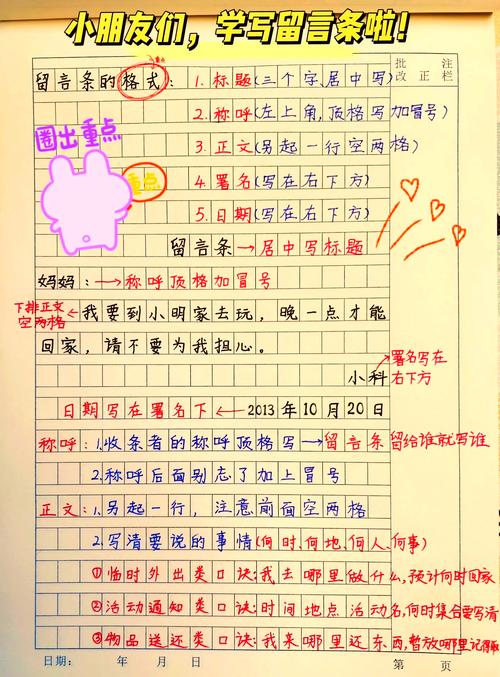 小朋友们，学写留言条啦！
批 注
改正栏
留言条的格式：1.标题(三个字居中写)
2.称呼(左上角,顶格写加冒号)
圈出重点
3.正文(另起一行空两格)
重点
4.署名(写在右下方)
5.日期(写在右下方)
留言条→居中写标题
妈妈：→称呼顶格加冒号
下排正文空两格←我要到小明家去玩，晚一点才能
回家，请不要为我担心。
小科
署名写在右下方
日期写在署名下←2013年10月20日
称呼：1.收条者的称呼顶格写→留言条留给谁就写谁
2.称呼后面别忘了加上冒号
正文：1.另起一行，注意前面空两格
2.写清要说的事情(何时、何地、何人、何事)
①临时外出类口诀:我去哪里做什么,预计何时回家
②活动通知类口诀:时间地点活动名,何时集合要写清
③物品送还类口诀:我来哪里还东西,暂放哪里记得取
日期： 年 月 日
第 页